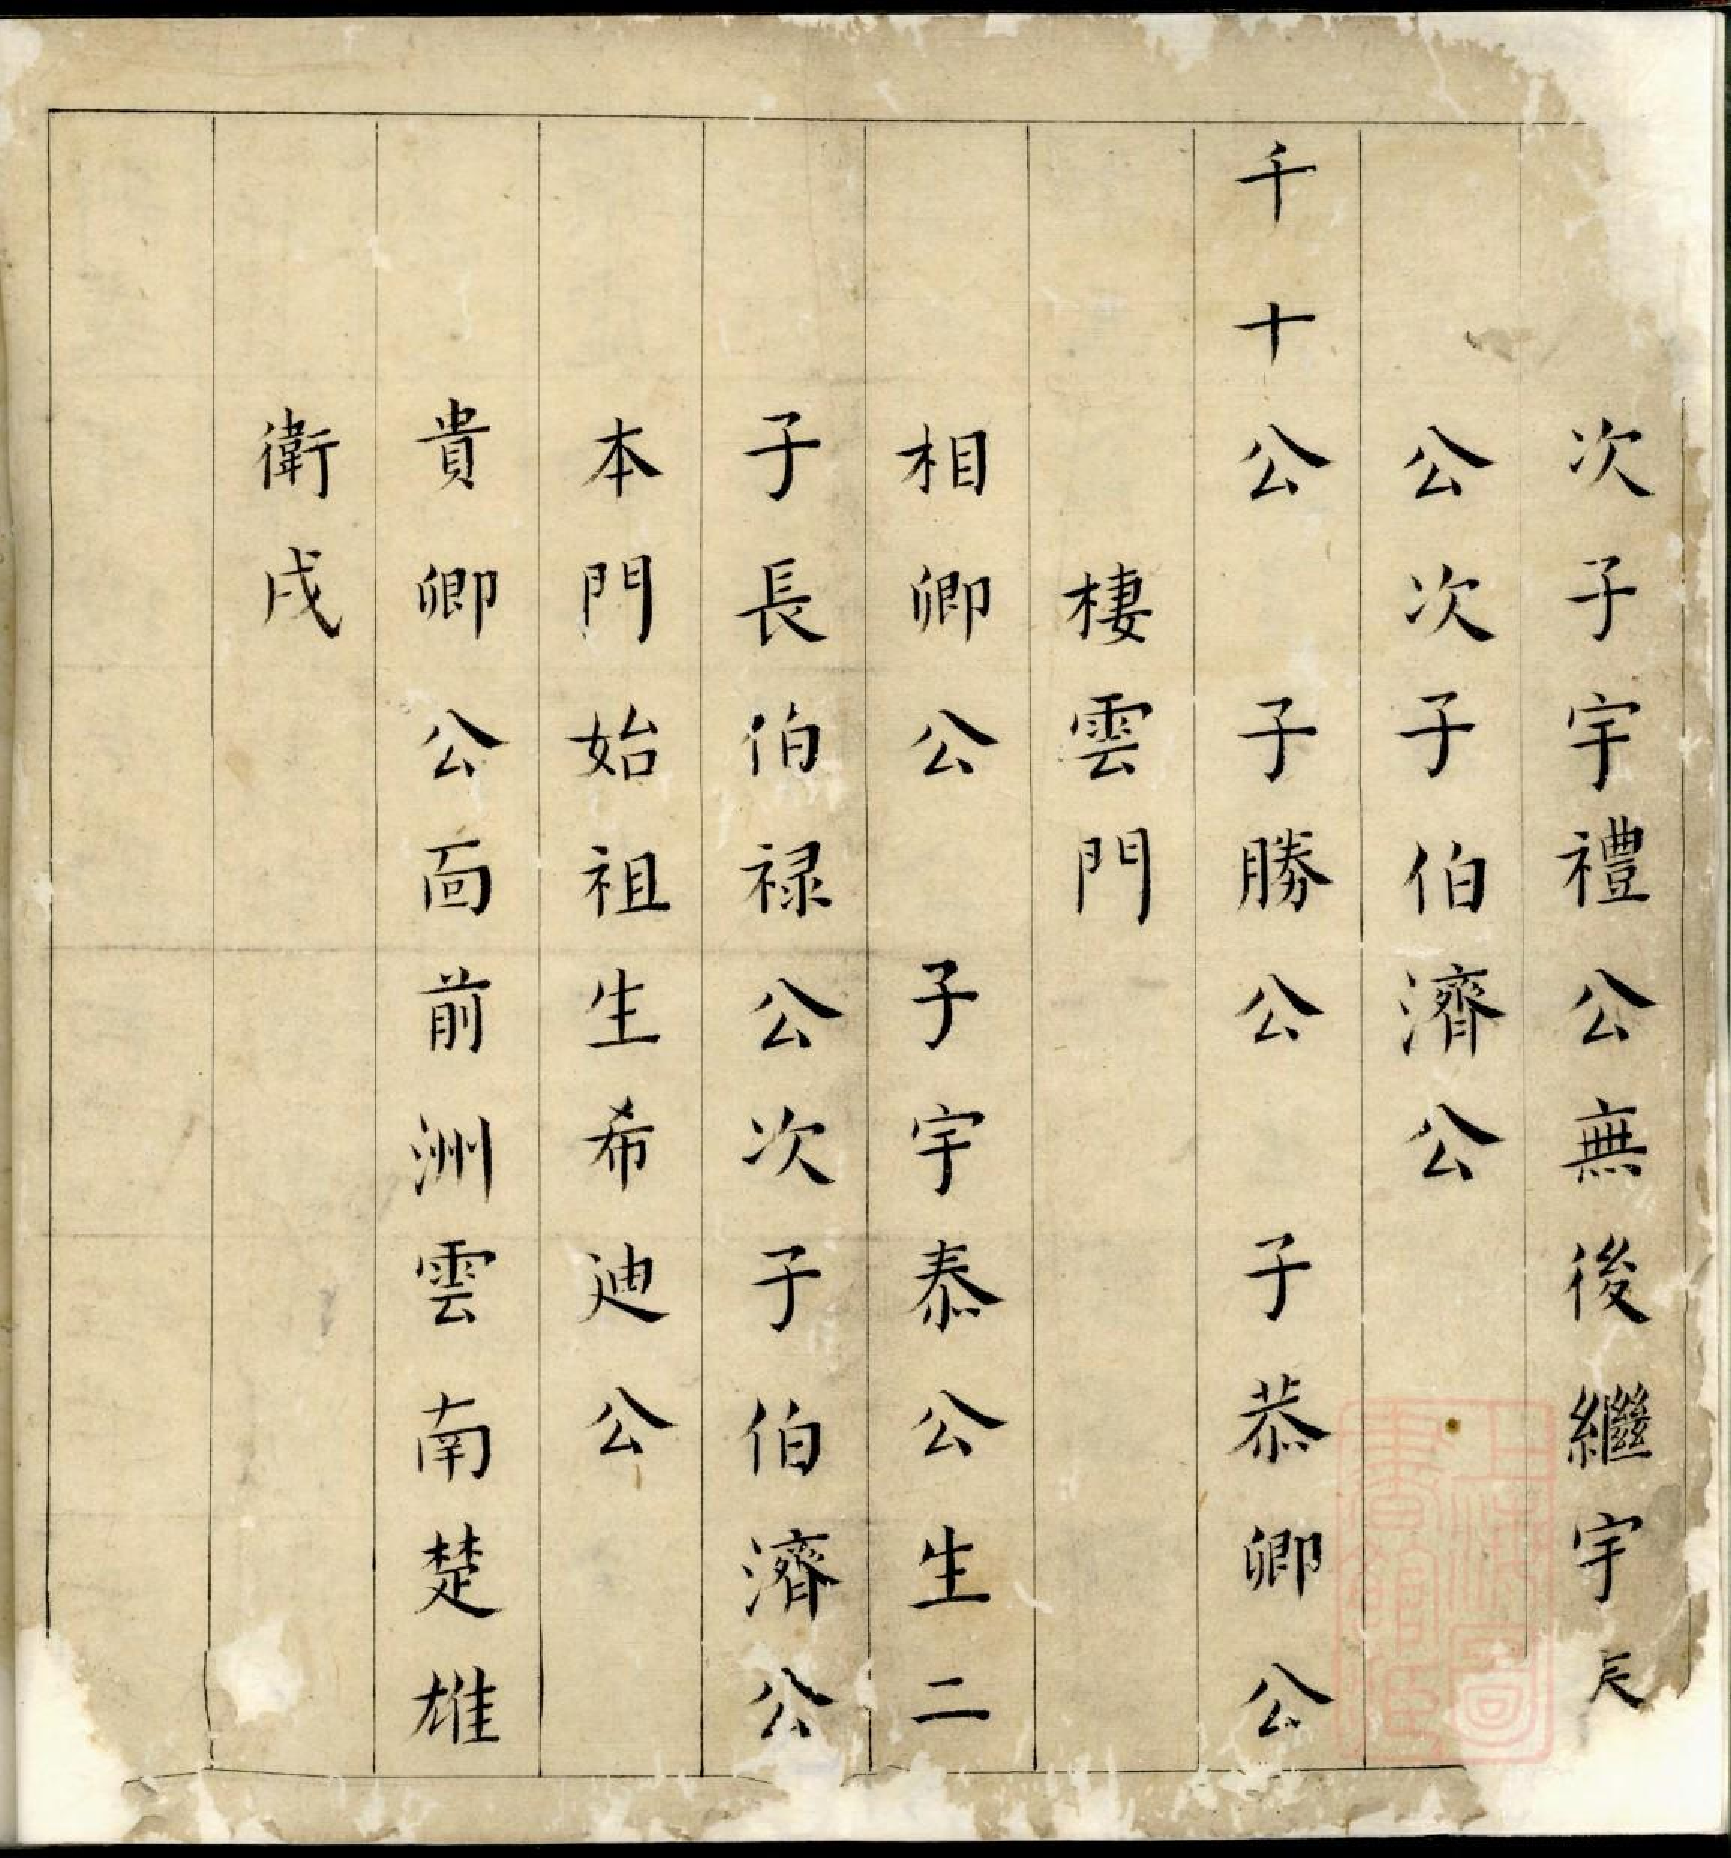 次子宇禮公無後繼宇
公次子伯濟公
千十公 子勝公 子恭卿公
棲雲門
相卿公 子宇泰公生二
子長伯禄公次子伯濟公
本門始祖生希迪公
貴卿公靣前洲雲南楚雄
衛戍
上海圖書館藏